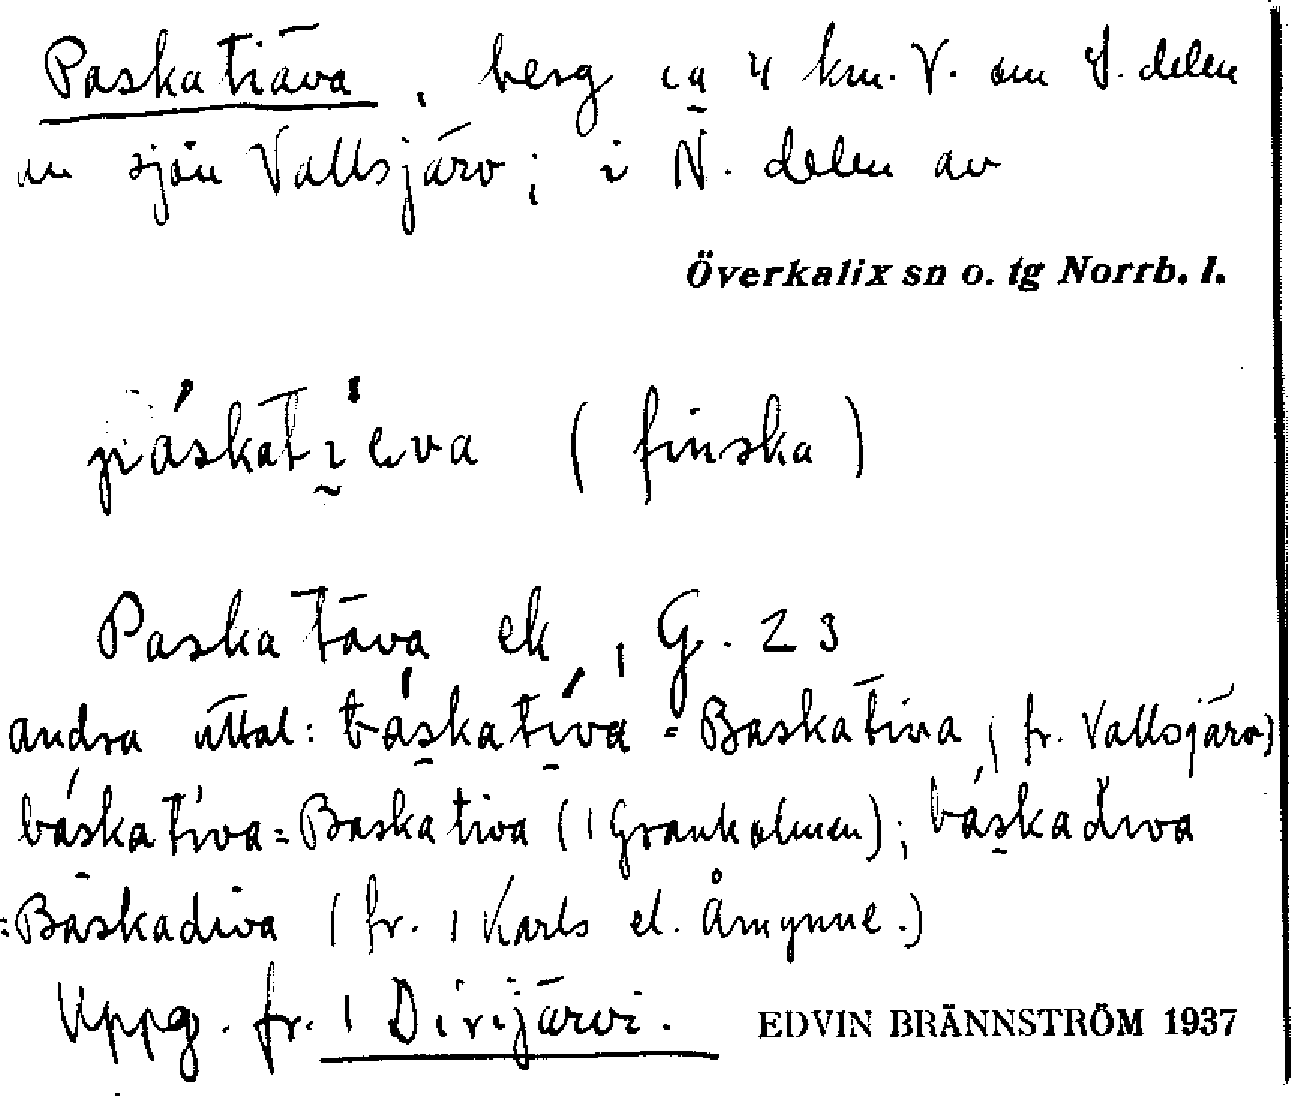 Paskatiäva, berg ca 4 km. V. om S. delen
av sjön Vallsjärv; i N. delen av
Överkalix sn o. tg Norrb. l.
páskatịeva (finska)
Paskatäva ek, G. 23
andra uttal: báskatíva = Baskativa, fr. Vallsjärv)
báskatíva = Baskativa (1 Granholmen); báskadíva
=Baskadiva (fr. 1 Karls el. Åmynne.)
Uppg. fr. 1 Dirijärvi. EDVIN BRÄNNSTRÖM 1937